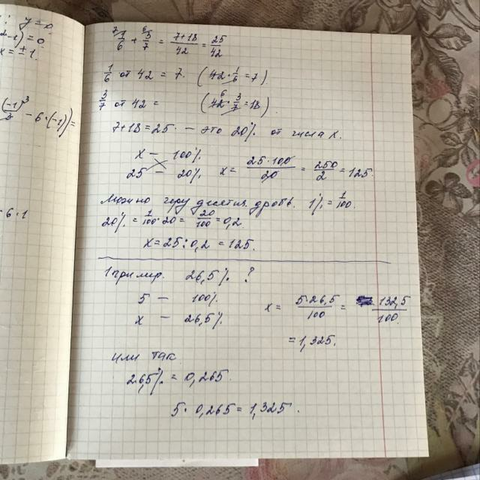 y=0
-1)=0
x=±1.
(-1)³ - 6·(-1))=
6·1
1/6 + 3/7 = (7+18)/42 = 25/42
1/6 от 42 = 7. (42·1/6=7)
3/7 от 42 = (42·3/7=18)
7+18=25 - это 20% от числа x.
x — 100%
25 — 20% x = 25·100/20 = 250/2 = 125
Можно через десятич. дробь. 1% = 1/100
20% = 1/100·20 = 20/100 = 0,2
x=25:0,2=125.
1 пример. 26,5% ?
5 — 100% x = 5·26,5/100 = 132,5/100
x — 26,5% = 1,325.
или так
26,5% = 0,265
5·0,265=1,325.